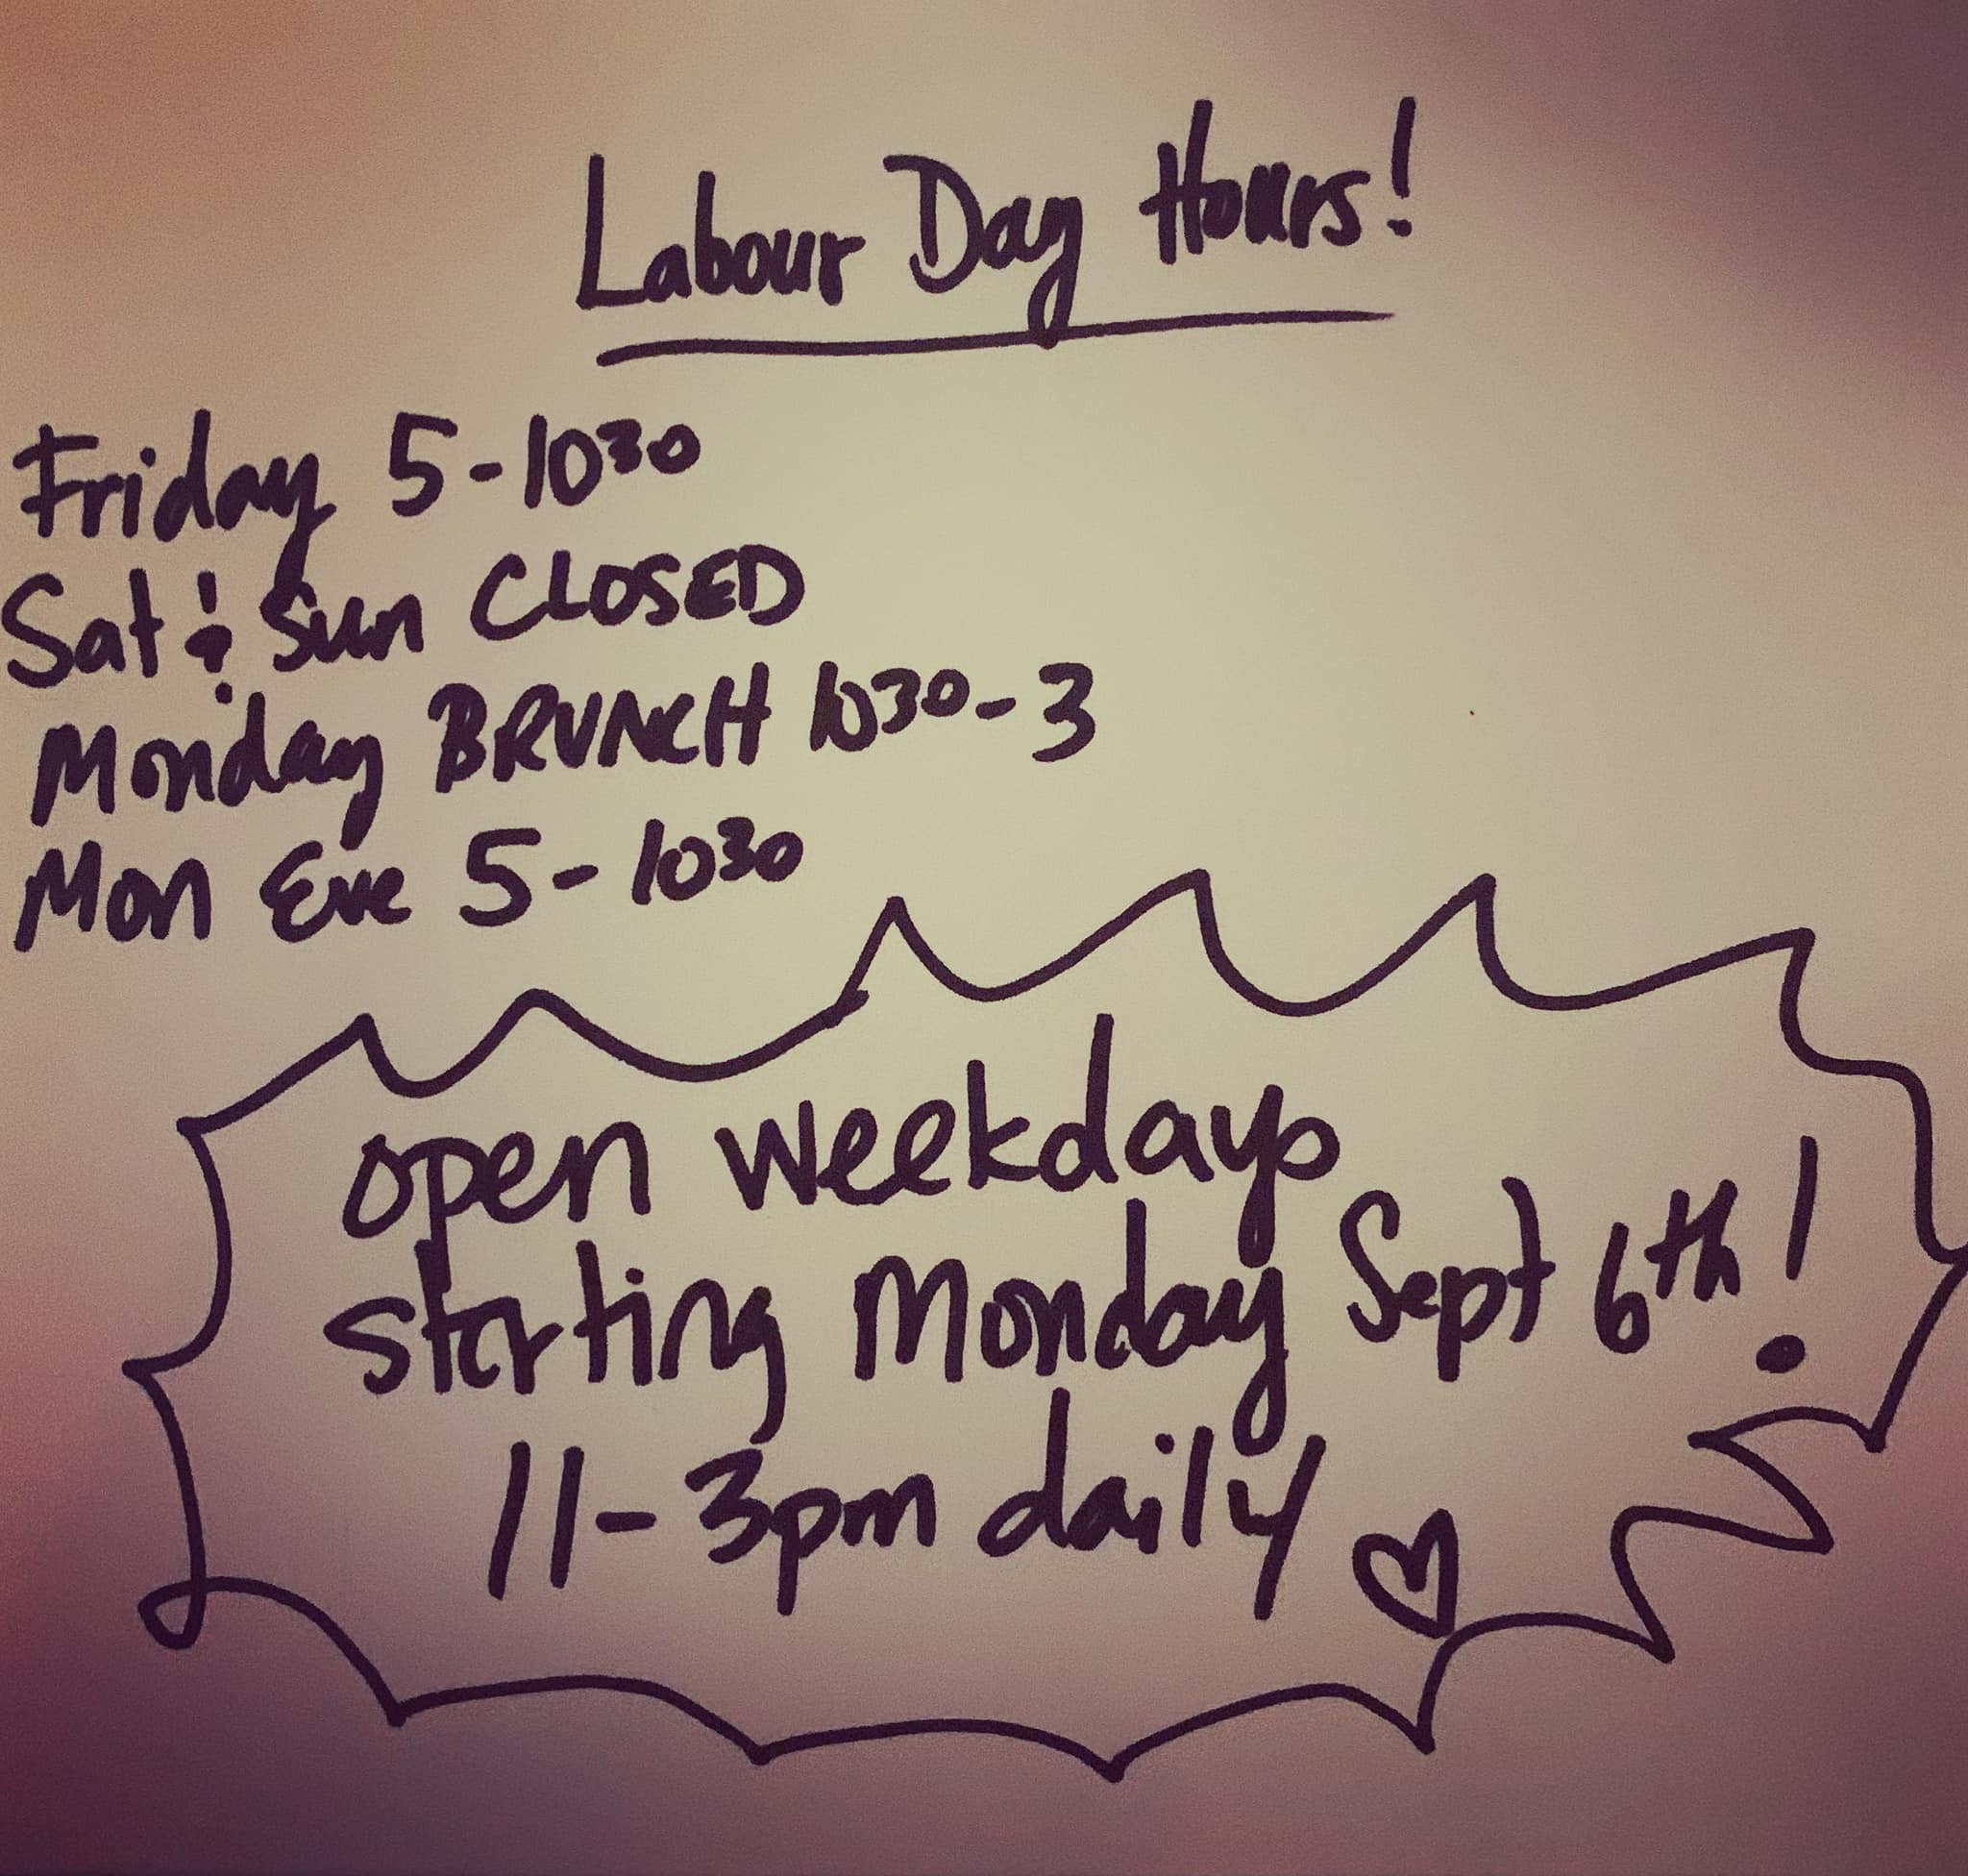 Labour Day Hours!
Friday 5-1030
Sat & Sun CLOSED
Monday BRUNCH 1030-3
Mon Eve 5-1030
open weekdays
starting Monday Sept 6th!
11-3pm daily